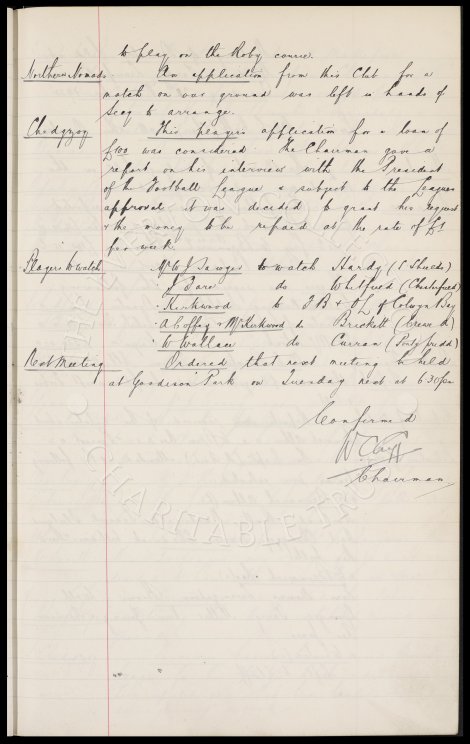 to play on the Roby course.
Northern Nomads. An application from this Club for a
match on our ground was left in hands of
Secy to arrange.
Chedgzoy This players application for a loan of
£100 was considered. The Chairman gave a
report on his interview with the President
of the Football League & subject to the Leagues
approval it was decided to grant his request
& the money to be repaid at the rate of £1
per week.
Players to watch Mr W J Sawyer to watch Hardy (S Shields)
" J Bare do Whitfied (Chesterfied)
" Kirkwood to I B & OL of Colwyn Bay
" A Coffey & Mr Kirkwood do Brickett (Crewe A)
" W Wallace do Curran (Ponty pridd)
Next Meeting Ordered that next meeting be held
at Goodison Park on Tuesday next at 6.30 pm
Confirmed
W C Cuff
Chairman
THE EVERTON
CHARITABLE TRUST